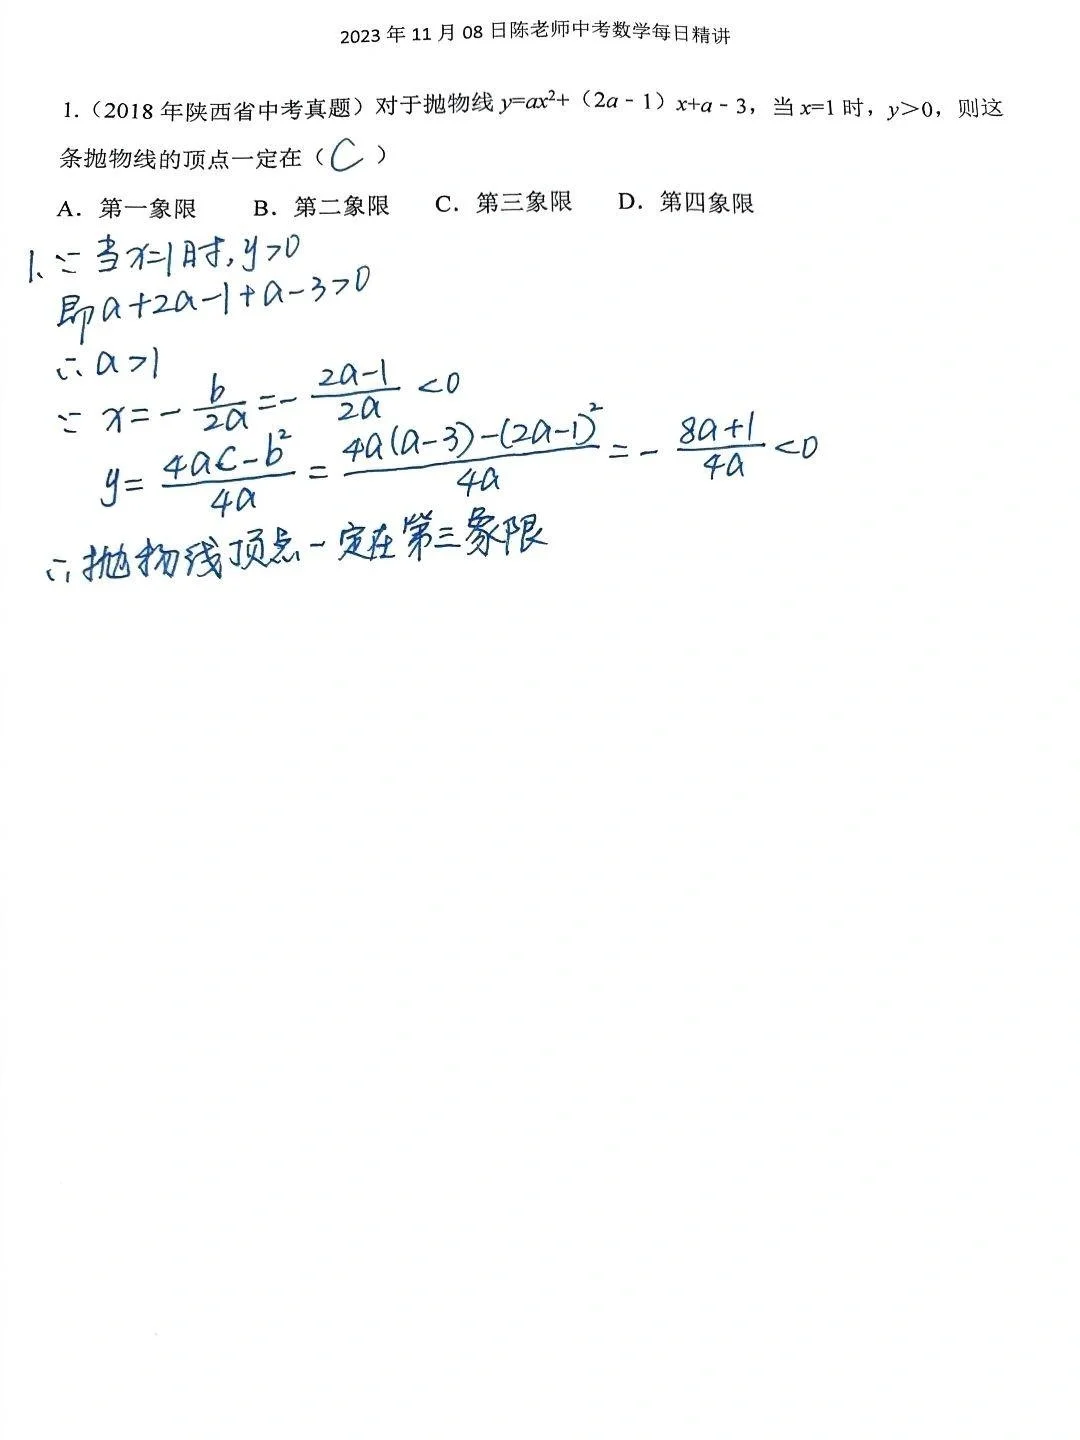 2023 年 11 月 08 日陈老师中考数学每日精讲
1.（2018 年陕西省中考真题）对于抛物线 y=ax²+（2a﹣1）x+a﹣3，当 x=1 时，y＞0，则这
条抛物线的顶点一定在（ C ）
A．第一象限 B．第二象限 C．第三象限 D．第四象限
1、∵ 当x=1时,y>0
即a+2a-1+a-3>0
∴ a>1
∵ x=-b/2a=-(2a-1)/2a<0
y=(4ac-b²)/4a=(4a(a-3)-(2a-1)²)/4a=-(8a+1)/4a<0
∴ 抛物线顶点一定在第三象限